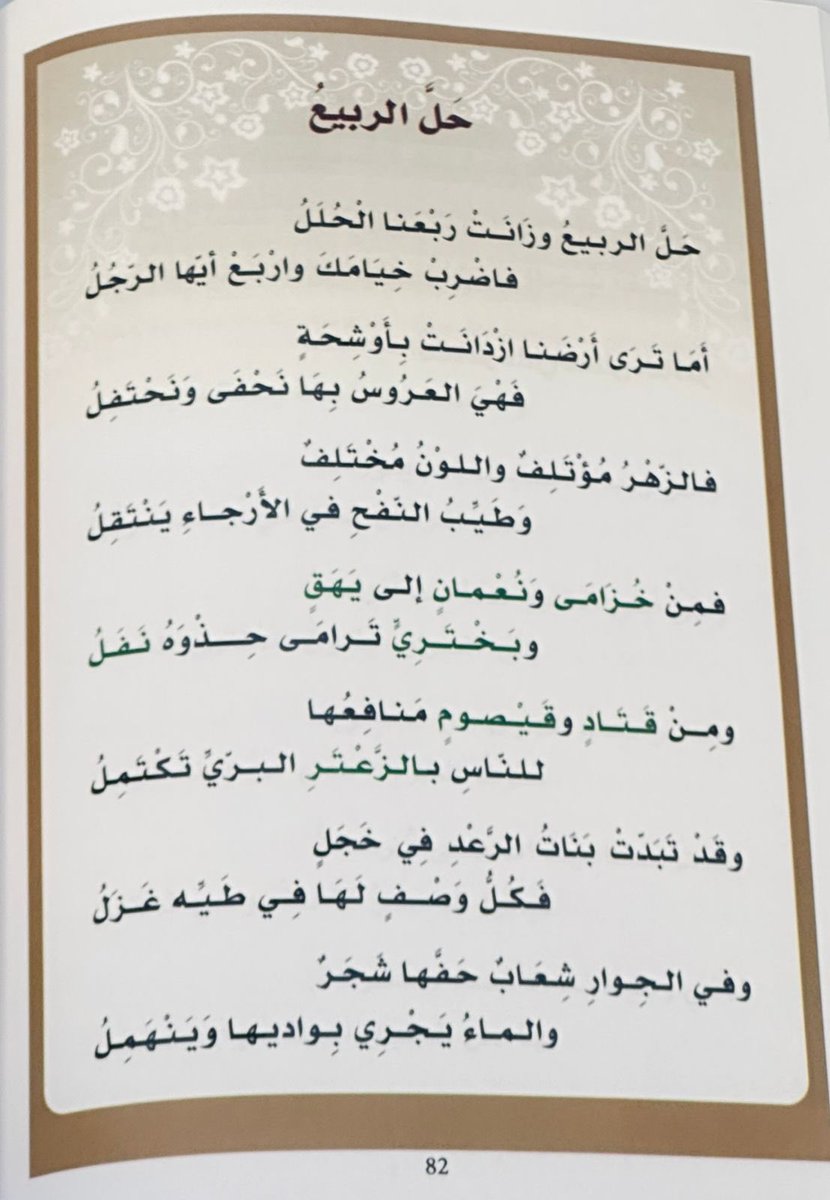 حَلَّ الربيعُ
حَلَّ الربيعُ وزَانَتْ رَبْعَنا الْحُلَلُ
فاضْرِبْ خِيَامَكَ وارْبَعْ أيّها الرّجُلُ
أَمَا تَرَى أَرْضَنا ازْدَانَتْ بِأَوْشِحَةٍ
فَهْيَ العَرُوسُ بِهَا نَحْفَى وَنَحْتَفِلُ
فالزّهْرُ مُؤْتَلِفٌ واللوْنُ مُخْتَلِفٌ
وَطَيِّبُ النّفْحِ في الأَرْجاءِ يَنْتَقِلُ
فمِنْ خُزَامَى وَنُعْمانٍ إلى يَهَقٍ
وبَخْتَرِيٍّ تَرامَى حِذْوَهُ نَفَلُ
ومِنْ قَتَادٍ وقَيْصومٍ مَنافِعُها
للنّاسِ بالزَّعْتَرِ البرّيِّ تَكْتَمِلُ
وقَدْ تَبَدّتْ بَنَاتُ الرَّعْدِ فِي خَجَلٍ
فَكُلُّ وَصْفٍ لَهَا فِي طَيِّه غَزَلُ
وفي الجِوارِ شِعَابٌ حَفَّها شَجَرٌ
والماءُ يَجْرِي بِواديها وَيَنْهَمِلُ
82